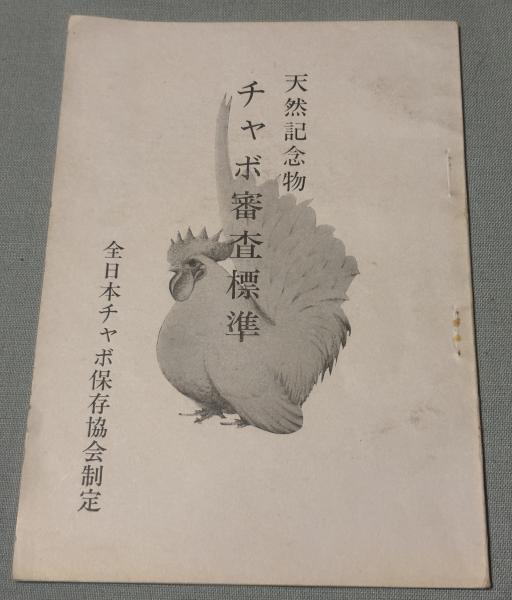 天然記念物
チャボ審査標準
全日本チャボ保存協会制定